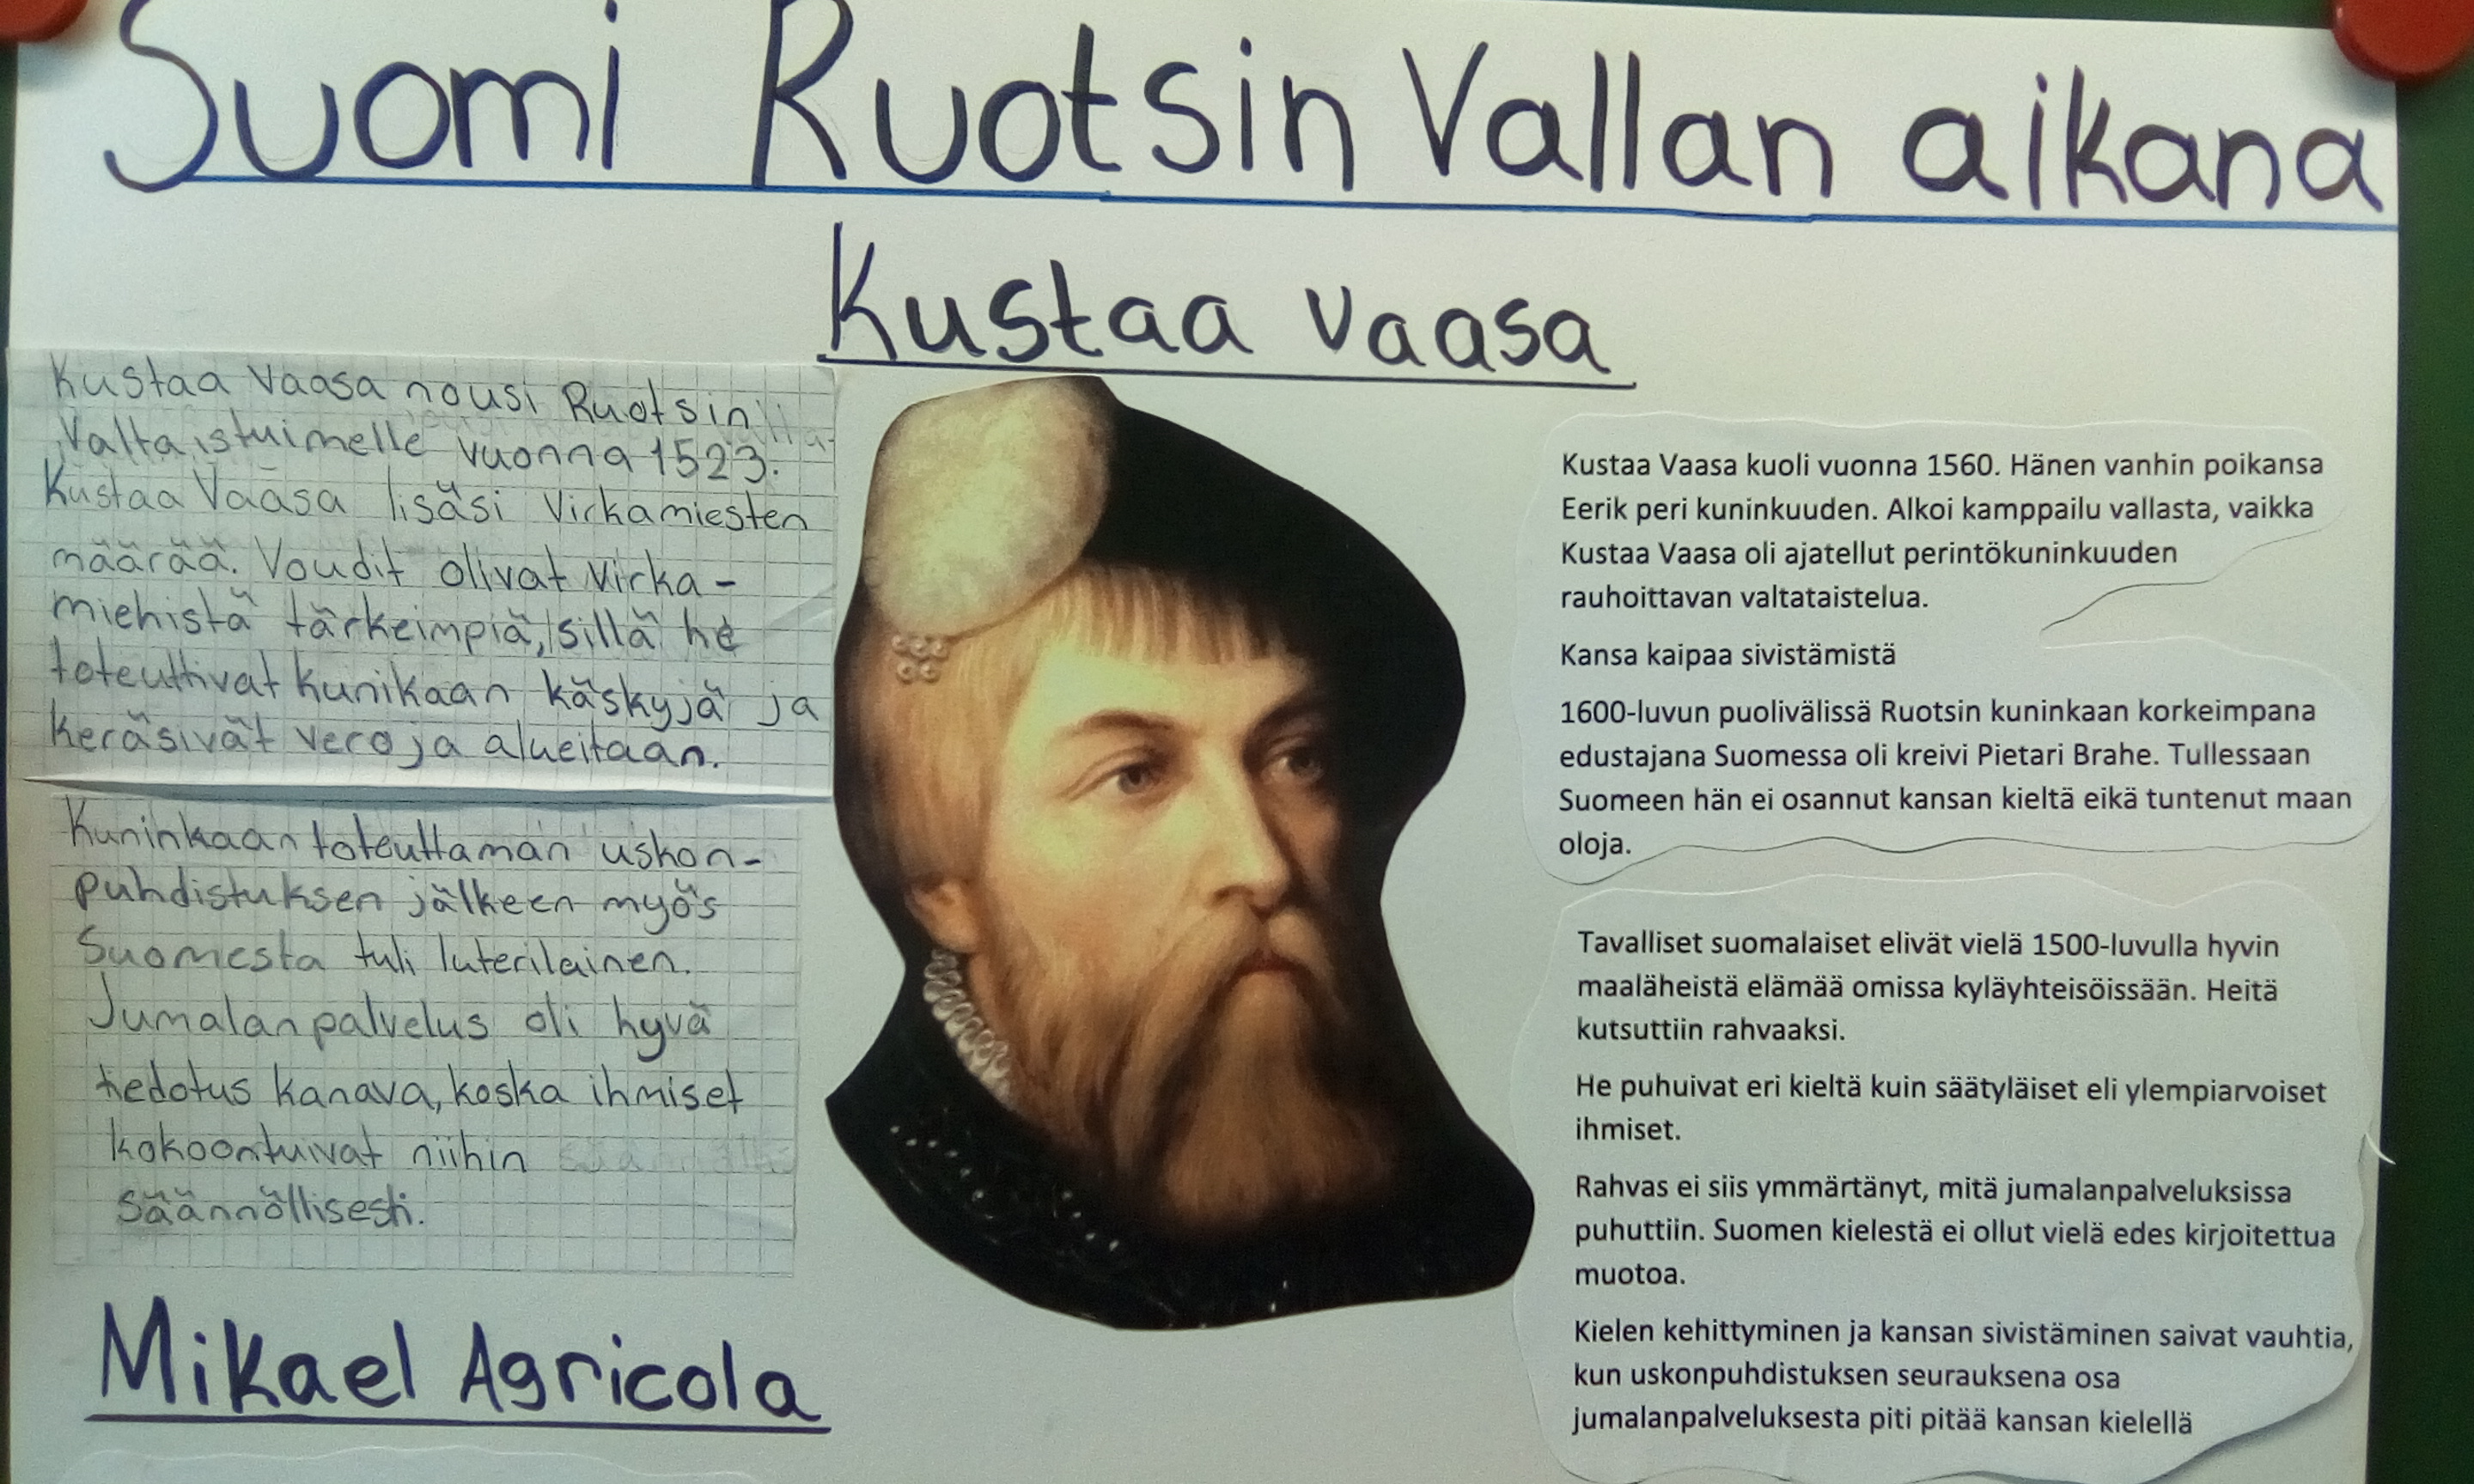 Suomi Ruotsin Vallan aikana
Kustaa Vaasa
Kustaa Vaasa nousi Ruotsin
Valta istuimelle vuonna 1523.
Kustaa Vaasa lisäsi Virkamiesten
määrää. Voudit olivat virka-
miehistä tärkeimpiä, sillä he
toteuttivat kunikaan käskyjä ja
keräsivät veroja alueitaan.
Kuninkaan toteuttaman uskon-
puhdistuksen jälkeen myös
Suomesta tuli luterilainen.
Jumalanpalvelus oli hyvä
tiedotus kanava, koska ihmiset
kokoontuivat niihin
säännöllisesti.
Mikael Agricola
Kustaa Vaasa kuoli vuonna 1560. Hänen vanhin poikansa
Eerik peri kuninkuuden. Alkoi kamppailu vallasta, vaikka
Kustaa Vaasa oli ajatellut perintökuninkuuden
rauhoittavan valtataistelua.
Kansa kaipaa sivistämistä
1600-luvun puolivälissä Ruotsin kuninkaan korkeimpana
edustajana Suomessa oli kreivi Pietari Brahe. Tullessaan
Suomeen hän ei osannut kansan kieltä eikä tuntenut maan
oloja.
Tavalliset suomalaiset elivät vielä 1500-luvulla hyvin
maaläheistä elämää omissa kyläyhteisöissään. Heitä
kutsuttiin rahvaaksi.
He puhuivat eri kieltä kuin säätyläiset eli ylempiarvoiset
ihmiset.
Rahvas ei siis ymmärtänyt, mitä jumalanpalveluksissa
puhuttiin. Suomen kielestä ei ollut vielä edes kirjoitettua
muotoa.
Kielen kehittyminen ja kansan sivistäminen saivat vauhtia,
kun uskonpuhdistuksen seurauksena osa
jumalanpalveluksesta piti pitää kansan kielellä